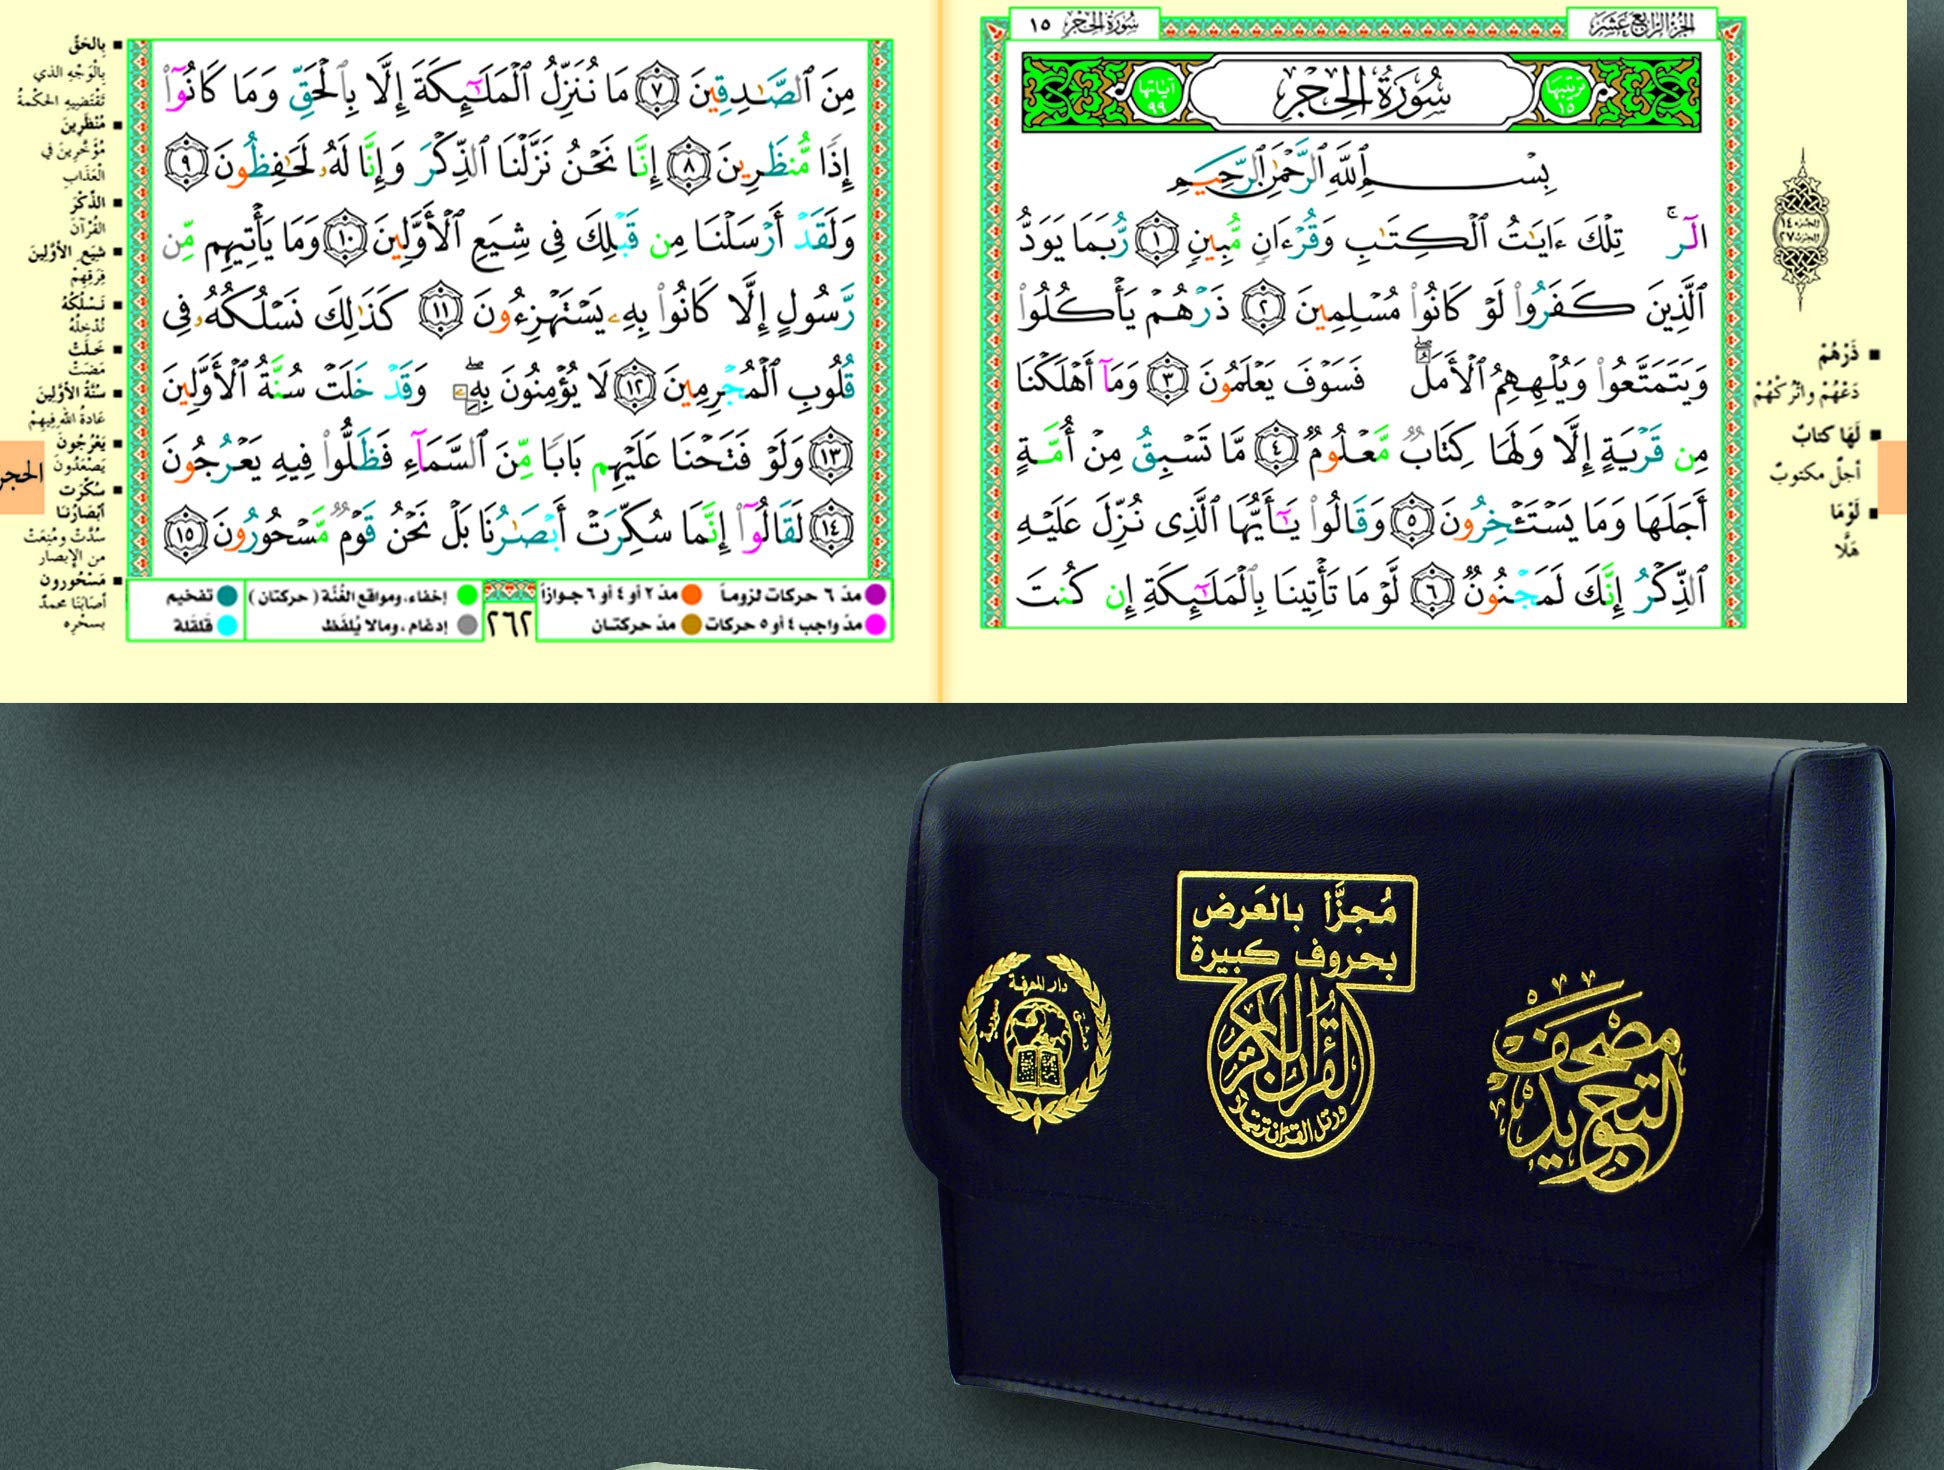 الجزء الرابع عشر
سُورَةُ الحِجر ١٥
ترتيبها ١٥
سُورَةُ الحِجر
آياتها ٩٩
بِسْمِ ٱللَّهِ ٱلرَّحْمَٰنِ ٱلرَّحِيمِ
الٓر ۚ تِلْكَ ءَايَٰتُ ٱلْكِتَٰبِ وَقُرْءَانٍ مُّبِينٍ ١ رُّبَمَا يَوَدُّ
ٱلَّذِينَ كَفَرُوا۟ لَوْ كَانُوا۟ مُسْلِمِينَ ٢ ذَرْهُمْ يَأْكُلُوا۟
وَيَتَمَتَّعُوا۟ وَيُلْهِهِمُ ٱلْأَمَلُ ۖ فَسَوْفَ يَعْلَمُونَ ٣ وَمَآ أَهْلَكْنَا
مِن قَرْيَةٍ إِلَّا وَلَهَا كِتَابٌ مَّعْلُومٌ ٤ مَّا تَسْبِقُ مِنْ أُمَّةٍ
أَجَلَهَا وَمَا يَسْتَـْٔخِرُونَ ٥ وَقَالُوا۟ يَٰٓأَيُّهَا ٱلَّذِى نُزِّلَ عَلَيْهِ
ٱلذِّكْرُ إِنَّكَ لَمَجْنُونٌ ٦ لَّوْ مَا تَأْتِينَا بِٱلْمَلَٰٓئِكَةِ إِن كُنتَ
الجزء ١٤
الحزب ٢٧
■ ذَرْهُمْ
دَعْهُمْ واتْرُكْهُمْ
■ لَهَا كتابٌ
أجلٌ مكتوبٌ
■ لَوْمَا
هَلَّا
مِنَ ٱلصَّٰدِقِينَ ٧ مَا نُنَزِّلُ ٱلْمَلَٰٓئِكَةَ إِلَّا بِٱلْحَقِّ وَمَا كَانُوٓا۟
إِذًا مُّنظَرِينَ ٨ إِنَّا نَحْنُ نَزَّلْنَا ٱلذِّكْرَ وَإِنَّا لَهُۥ لَحَٰفِظُونَ ٩
وَلَقَدْ أَرْسَلْنَا مِن قَبْلِكَ فِى شِيَعِ ٱلْأَوَّلِينَ ١٠ وَمَا يَأْتِيهِم مِّن
رَّسُولٍ إِلَّا كَانُوا۟ بِهِۦ يَسْتَهْزِءُونَ ١١ كَذَٰلِكَ نَسْلُكُهُۥ فِى
قُلُوبِ ٱلْمُجْرِمِينَ ١٢ لَا يُؤْمِنُونَ بِهِۦ ۖ وَقَدْ خَلَتْ سُنَّةُ ٱلْأَوَّلِينَ
١٣ وَلَوْ فَتَحْنَا عَلَيْهِم بَابًا مِّنَ ٱلسَّمَآءِ فَظَلُّوا۟ فِيهِ يَعْرُجُونَ
١٤ لَقَالُوٓا۟ إِنَّمَا سُكِّرَتْ أَبْصَٰرُنَا بَلْ نَحْنُ قَوْمٌ مَّسْحُورُونَ ١٥
■ بالحَقِّ
بالْوَجْهِ الذي
تَقْتَضِيهِ الحكْمةُ
■ مُنْظَرِينَ
مُؤَخَّرِينَ في
الْعَذَابِ
■ الذِّكْرَ
القُرْآنَ
■ شِيَعِ الأوَّلِينَ
فِرَقِهِمْ
■ نَسْلُكُهُ
نُدْخِلُهُ
■ خَلَتْ
مَضَتْ
■ سُنَّةُ الأوَّلِينَ
عَادةُ الله فِيهِمْ
■ يَعْرُجُونَ
يَصْعَدُونَ
■ سُكِّرَت
أبْصَارُنَا
سُدَّتْ ومُنِعَتْ
من الإبصار
■ مَسْحُورون
أصابَنَا محمدٌ
بسحْرِه
الحجر
مدّ ٦ حركات لزوماً
مدّ ٢ أو ٤ أو ٦ جوازاً
مدّ واجب ٤ أو ٥ حركات
مدّ حركتان
٢٦٢
إخفاء، ومواقع الغُنَّة (حركتان)
تفخيم
إدغام، ومالا يُلفَظ
قلقلة
مُجزَّأ بالعَرض
بحروف كبيرة
القرآن الكريم
ورتل القرآن ترتيلا
مصحف
التجويد
دار المعرفة
دمشق
سورية